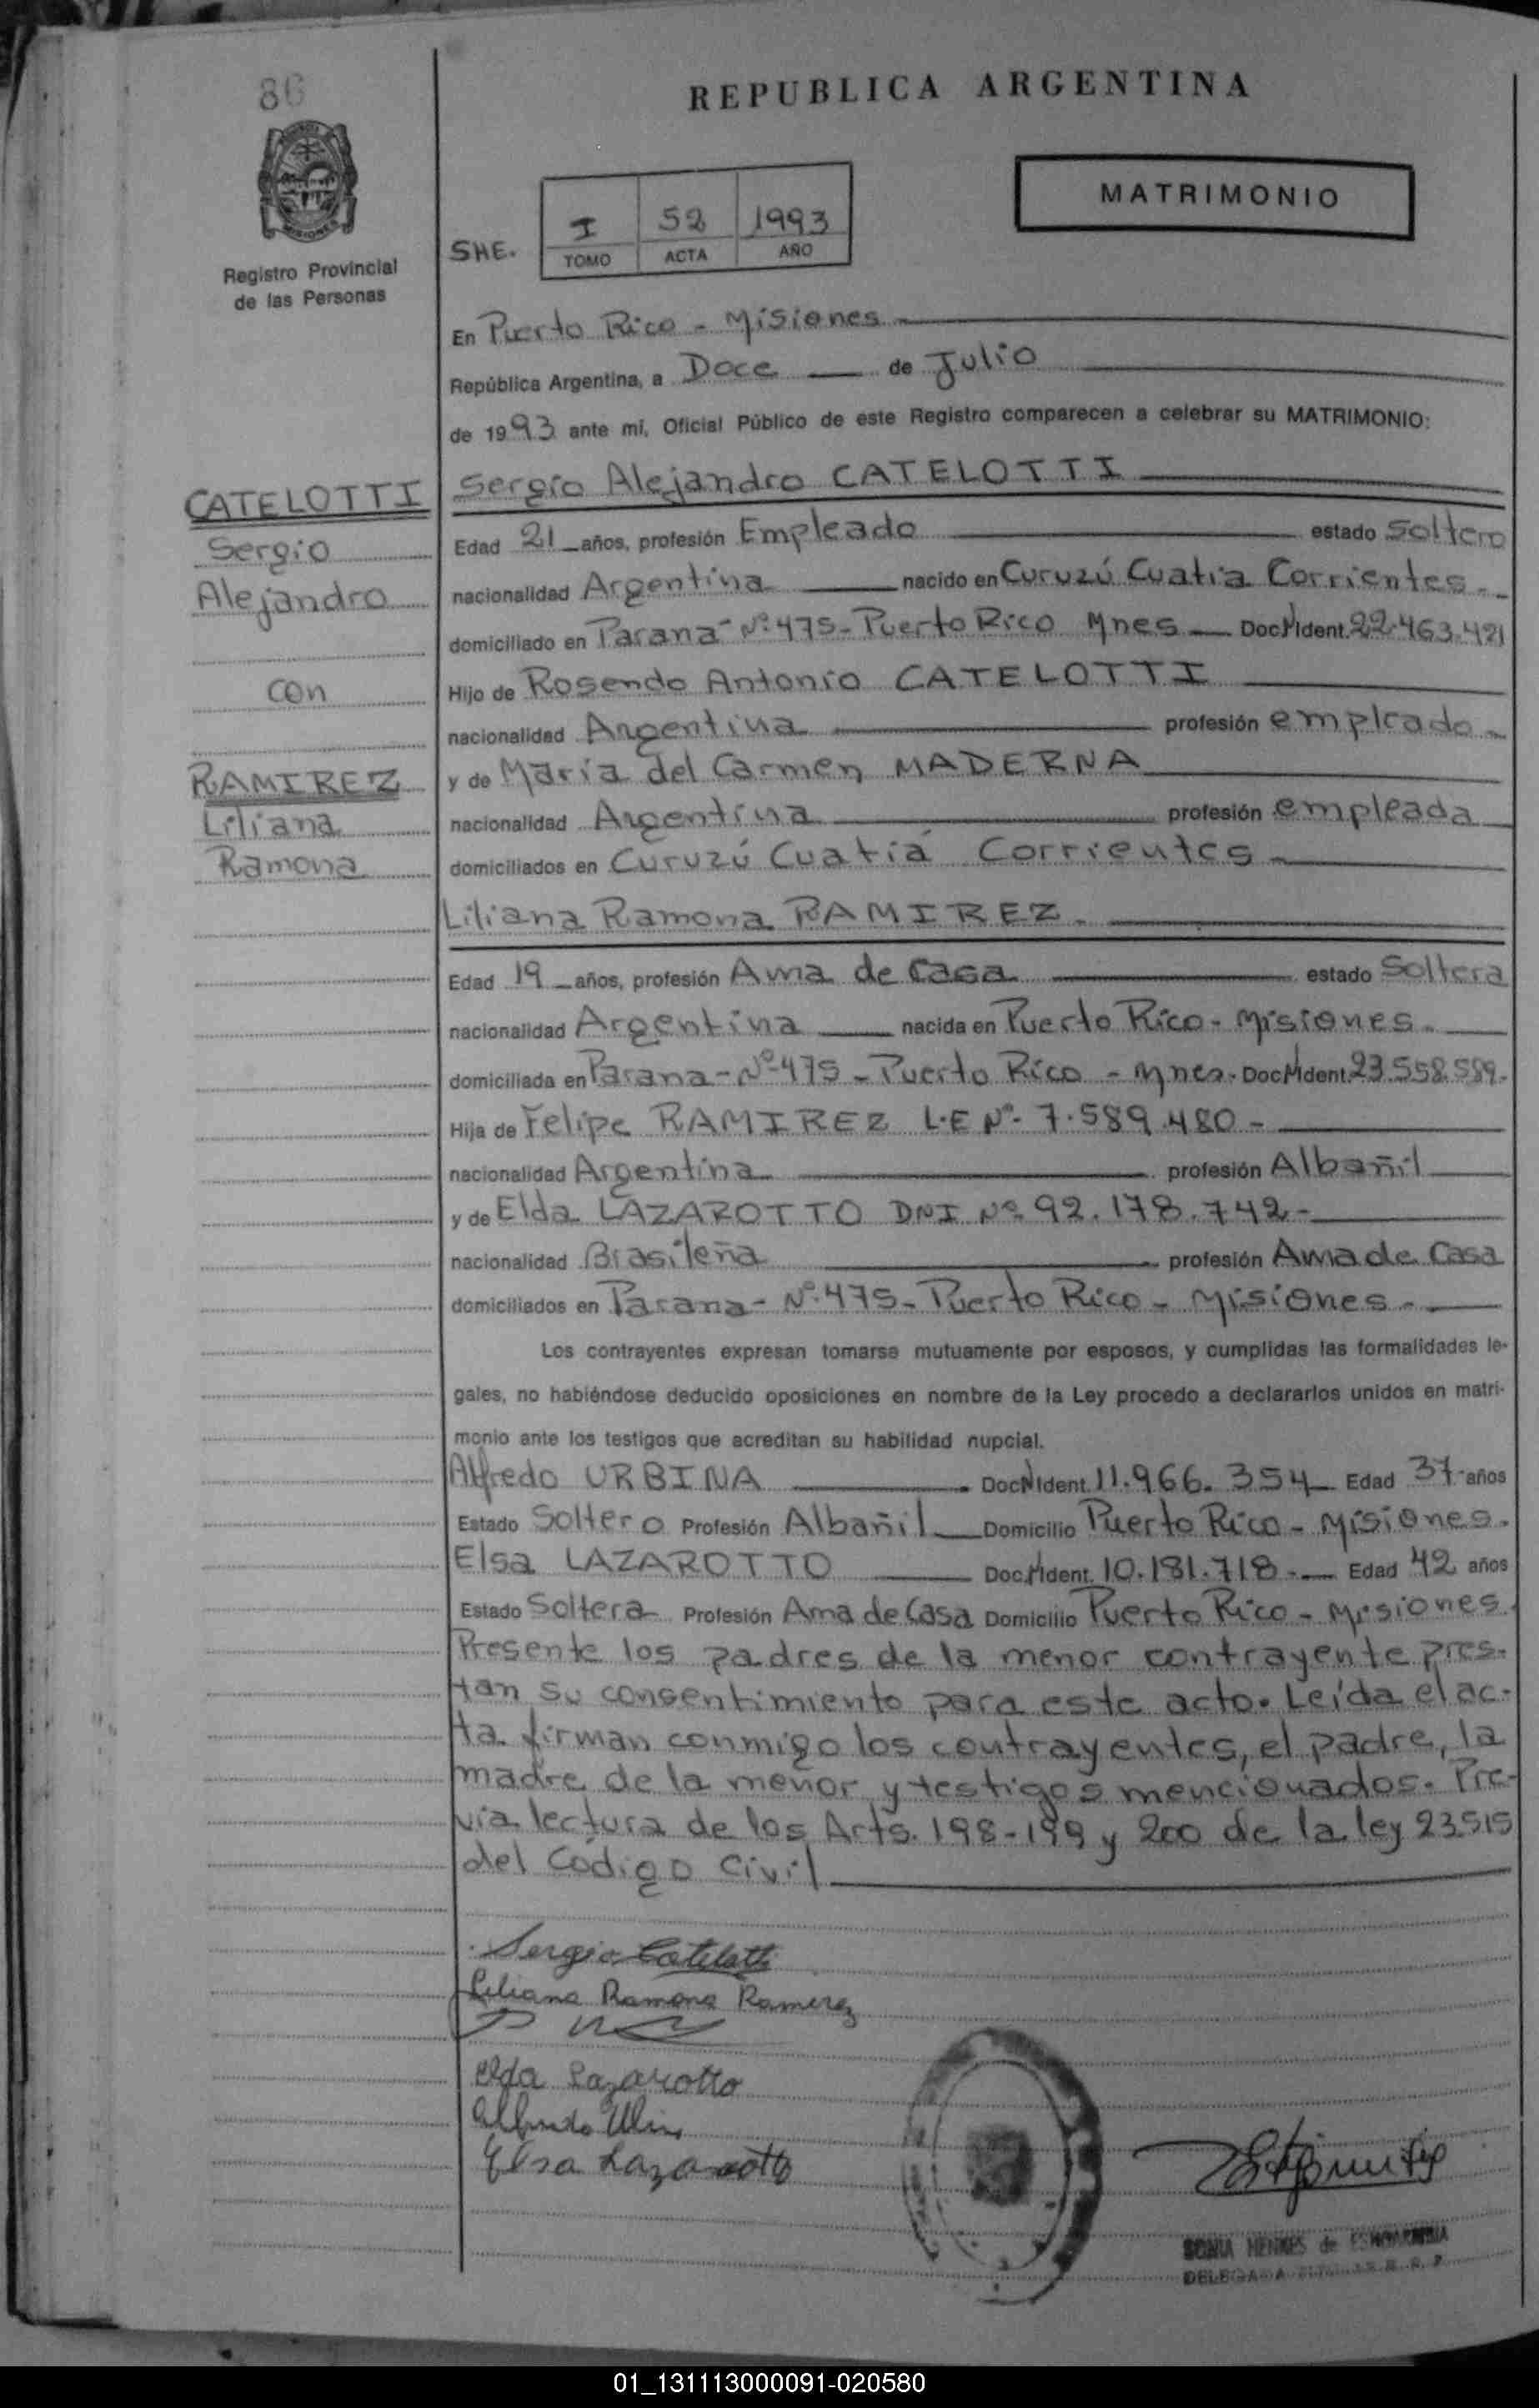 86
REPUBLICA ARGENTINA
MATRIMONIO
Registro Provincial
de las Personas
SHE.
I 52 1993
TOMO ACTA AÑO
En Puerto Rico - Misiones
República Argentina, a Doce de Julio
de 1993 ante mí, Oficial Público de este Registro comparecen a celebrar su MATRIMONIO:
CATELOTTI
Sergio
Alejandro
con
RAMIREZ
Liliana
Ramona
Sergio Alejandro CATELOTTI
Edad 21 años, profesión Empleado estado Soltero
nacionalidad Argentina nacido en Curuzú Cuatia Corrientes.
domiciliado en Paraná Nº 475 - Puerto Rico Mnes Doc N Ident. 22.463.421
Hijo de Rosendo Antonio CATELOTTI
nacionalidad Argentina profesión empleado
y de María del Carmen MADERNA
nacionalidad Argentina profesión empleada
domiciliados en Curuzú Cuatiá Corrientes
Liliana Ramona RAMIREZ.
Edad 19 años, profesión Ama de Casa estado Soltera
nacionalidad Argentina nacida en Puerto Rico - Misiones.
domiciliada en Parana - Nº 475 - Puerto Rico - Mnes. Doc N Ident. 23.558.589.
Hija de Felipe RAMIREZ L.E Nº 7.589.480 -
nacionalidad Argentina profesión Albañil
y de Elda LAZAROTTO DNI Nº 92.178.742 -
nacionalidad Brasileña profesión Ama de Casa
domiciliados en Parana - Nº 475 - Puerto Rico - Misiones -
Los contrayentes expresan tomarse mutuamente por esposos, y cumplidas las formalidades le-
gales, no habiéndose deducido oposiciones en nombre de la Ley procedo a declararlos unidos en matri-
monio ante los testigos que acreditan su habilidad nupcial.
Alfredo URBINA Doc N Ident. 11.966.354 Edad 37 años
Estado Soltero Profesión Albañil Domicilio Puerto Rico - Misiones.
Elsa LAZAROTTO Doc. N Ident. 10.181.718 Edad 42 años
Estado Soltera Profesión Ama de Casa Domicilio Puerto Rico - Misiones.
Presente los padres de la menor contrayente pres-
tan su consentimiento para este acto. Leída el ac-
ta firman conmigo los contrayentes, el padre, la
madre de la menor y testigos mencionados. Pre-
via lectura de los Arts. 198-199 y 200 de la ley 23.515
del Código Civil
Sergio Catelotti
Liliana Ramona Ramirez
Elda Lazarotto
Elsa Lazarotto
SONIA HENNES de
DELEGADA
MISIONES
01_131113000091-020580